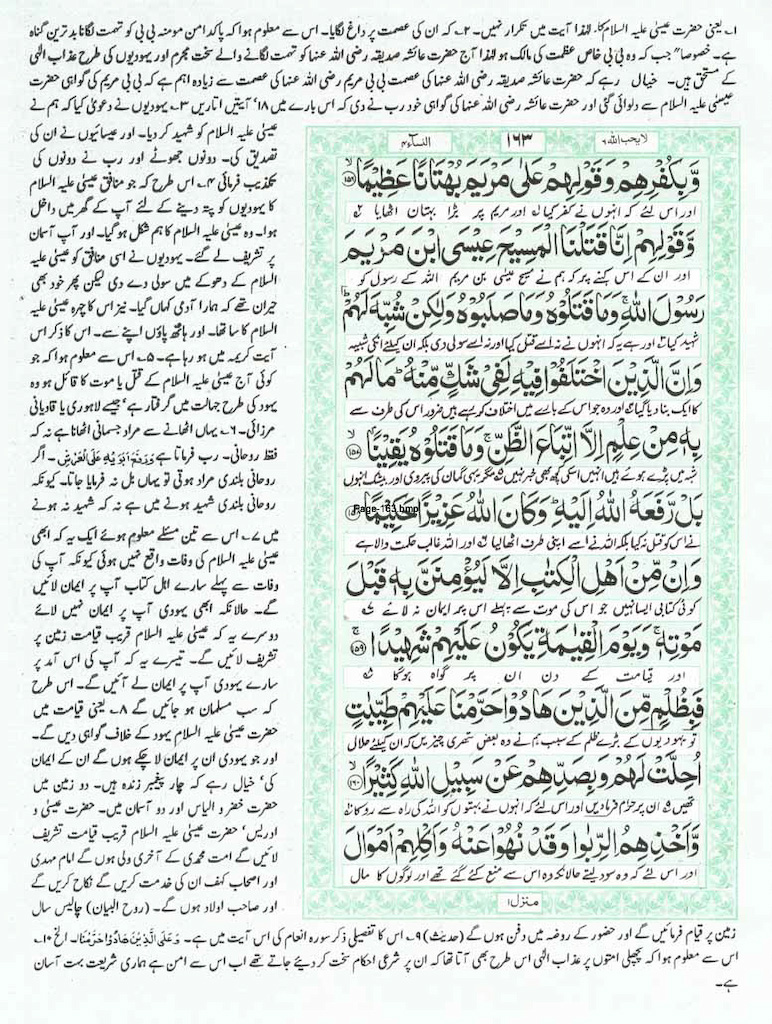 ۱۔ یعنی حضرت عیسیٰ علیہ السلام کا۔ لہٰذا آیت میں تکرار نہیں۔ ۲۔ کہ ان کی عصمت پر داغ لگایا۔ اس سے معلوم ہوا کہ پاکدامن مومنہ بی بی کو تہمت لگانا بدترین گناہ
ہے۔ خصوصاً جب کہ وہ بی بی خاص عظمت کی مالک ہو لہٰذا آج حضرت عائشہ صدیقہ رضی اللہ عنہا کو تہمت لگانے والے سخت مجرم اور یہودیوں کی طرح عذاب الٰہی
کے مستحق ہیں۔ خیال رہے کہ حضرت عائشہ صدیقہ رضی اللہ عنہا کی عصمت بی بی مریم رضی اللہ عنہا کی عصمت سے زیادہ اہم ہے کہ بی بی مریم کی گواہی حضرت
عیسیٰ علیہ السلام سے دلوائی گئی اور حضرت عائشہ رضی اللہ عنہا کی گواہی خود رب نے دی کہ اس بارے میں ۱۸ آیتیں اتاریں ۳۔ یہودیوں نے دعویٰ کیا کہ ہم نے
عیسیٰ علیہ السلام کو شہید کر دیا۔ اور عیسائیوں نے ان کی
تصدیق کی۔ دونوں جھوٹے اور رب نے دونوں کی
تکذیب فرمائی ۴۔ اس طرح کہ جو منافق عیسیٰ علیہ السلام
کا یہودیوں کو پتہ دینے کے لئے آپ کے گھر میں داخل
ہوا۔ وہ عیسیٰ علیہ السلام کا ہم شکل ہو گیا۔ اور آپ آسمان
پر تشریف لے گئے۔ یہودیوں نے اسی منافق کو عیسیٰ علیہ
السلام کے دھوکے میں سولی دے دی لیکن پھر خود بھی
حیران تھے کہ ہمارا آدمی کہاں گیا۔ نیز اس کا چہرہ عیسیٰ علیہ
السلام کا سا تھا۔ اور ہاتھ پاؤں اپنے سے۔ اس کا ذکر اس
آیت کریمہ میں ہو رہا ہے۔ ۵۔ اس سے معلوم ہوا کہ جو
کوئی آج عیسیٰ علیہ السلام کے قتل یا موت کا قائل ہو وہ
یہود کی طرح جہالت میں گرفتار ہے جیسے لاہوری یا قادیانی
مرزائی۔ ۶۔ یہاں اٹھانے سے مراد جسمانی اٹھانا ہے نہ کہ
فقط روحانی۔ رب فرماتا ہے وَرَفَعَ اَبَوَيْهِ عَلَى الْعَرْشِ۔ اگر
روحانی بلندی مراد ہوتی تو یہاں بل نہ فرمایا جاتا۔ کیونکہ
روحانی بلندی شہید ہونے میں ہے نہ کہ شہید نہ ہونے
میں ۷۔ اس سے تین مسئلے معلوم ہوئے ایک یہ کہ ابھی
عیسیٰ علیہ السلام کی وفات واقع نہیں ہوئی کیونکہ آپ کی
وفات سے پہلے سارے اہل کتاب آپ پر ایمان لائیں
گے۔ حالانکہ ابھی یہودی آپ پر ایمان نہیں لائے
دوسرے یہ کہ عیسیٰ علیہ السلام قریب قیامت زمین پر
تشریف لائیں گے۔ تیسرے یہ کہ آپ کی اس آمد پر
سارے یہودی آپ پر ایمان لے آئیں گے۔ اس طرح
کہ سب مسلمان ہو جائیں گے ۸۔ یعنی قیامت میں
حضرت عیسیٰ علیہ السلام یہود کے خلاف گواہی دیں گے۔
اور جو یہودی ان پر ایمان لا چکے ہوں گے ان کے ایمان
کی، خیال رہے کہ چار پیغمبر زندہ ہیں۔ دو زمین میں
حضرت خضر و الیاس اور دو آسمان میں۔ حضرت عیسیٰ و
ادریس، حضرت عیسیٰ علیہ السلام قریب قیامت تشریف
لائیں گے امت محمدی کے آخری ولی ہوں گے امام مہدی
اور اصحاب کہف ان کی خدمت کریں گے نکاح کریں گے
اور صاحب اولاد ہوں گے۔ (روح البیان) چالیس سال
لا یحب اللہ ۶
۱۶۳
النساء ۴
وَّبِكُفْرِهِمْ وَقَوْلِهِمْ عَلٰى مَرْيَمَ بُهْتَانًا عَظِيْمًا ﴿۱۵۶﴾
اور اس لئے کہ انہوں نے کفر کیا ۱ اور مریم پر بڑا بہتان اٹھایا ۲
وَّقَوْلِهِمْ اِنَّا قَتَلْنَا الْمَسِيْحَ عِيْسَى ابْنَ مَرْيَمَ
اور ان کے اس کہنے پر کہ ہم نے مسیح عیسیٰ بن مریم اللہ کے رسول کو
رَسُوْلَ اللّٰهِ ۚ وَمَا قَتَلُوْهُ وَمَا صَلَبُوْهُ وَلٰكِنْ شُبِّهَ لَهُمْ ؕ
شہید کیا ۳ اور ہے یہ کہ انہوں نے نہ اسے قتل کیا اور نہ اسے سولی دی بلکہ ان کیلئے انکی شبیہ
وَاِنَّ الَّذِيْنَ اخْتَلَفُوْا فِيْهِ لَفِيْ شَكٍّ مِّنْهُ ؕ مَا لَهُمْ
کا ایک بنا دیا گیا ۴ اور وہ جو اس کے بارے میں اختلاف کر رہے ہیں ضرور اس کی طرف سے
بِهٖ مِنْ عِلْمٍ اِلَّا اتِّبَاعَ الظَّنِّ ۚ وَمَا قَتَلُوْهُ يَقِيْنًۢا ﴿۱۵۷﴾
شبہ میں پڑے ہوئے ہیں انہیں اسکی کچھ بھی خبر نہیں ۵ مگر یہی گمان کی پیروی اور بیشک انہوں
بَلْ رَّفَعَهُ اللّٰهُ اِلَيْهِ ؕ وَكَانَ اللّٰهُ عَزِيْزًا حَكِيْمًا
Page-163.bmp
نے اس کو قتل نہ کیا بلکہ اللہ نے اسے اپنی طرف اٹھا لیا ۶ اور اللہ غالب حکمت والا ہے
وَاِنْ مِّنْ اَهْلِ الْكِتٰبِ اِلَّا لَيُؤْمِنَنَّ بِهٖ قَبْلَ
کوئی کتابی ایسا نہیں جو اس کی موت سے پہلے اس پر ایمان نہ لائے ۷
مَوْتِهٖ ۚ وَيَوْمَ الْقِيٰمَةِ يَكُوْنُ عَلَيْهِمْ شَهِيْدًا ﴿۱۵۹﴾
اور قیامت کے دن ان پر گواہ ہوگا ۸
فَبِظُلْمٍ مِّنَ الَّذِيْنَ هَادُوْا حَرَّمْنَا عَلَيْهِمْ طَيِّبٰتٍ
تو یہودیوں کے بڑے ظلم کے سبب ہم نے وہ بعض ستھری چیزیں کہ ان کیلئے حلال
اُحِلَّتْ لَهُمْ وَبِصَدِّهِمْ عَنْ سَبِيْلِ اللّٰهِ كَثِيْرًا ﴿۱۶۰﴾
تھیں ۹ ان پر حرام فرما دیں اور اس لئے کہ انہوں نے بہتوں کو اللہ کی راہ سے روکا ۱۰
وَّاَخْذِهِمُ الرِّبٰوا وَقَدْ نُهُوْا عَنْهُ وَاَكْلِهِمْ اَمْوَالَ
اور اس لئے کہ وہ سود لیتے حالانکہ وہ اس سے منع کئے گئے تھے اور لوگوں کا مال
منزل ۱
زمین پر قیام فرمائیں گے اور حضور کے روضہ میں دفن ہوں گے (حدیث) ۹۔ اس کا تفصیلی ذکر سورہ انعام کی اس آیت میں ہے۔ وَعَلَى الَّذِيْنَ هَادُوْا حَرَّمْنَا۔ الخ ۱۰۔
اس سے معلوم ہوا کہ پچھلی امتوں پر عذاب الٰہی اس طرح بھی آتا تھا کہ ان پر شرعی احکام سخت کر دیئے جاتے تھے اب اس سے امن ہے ہماری شریعت بہت آسان
ہے۔